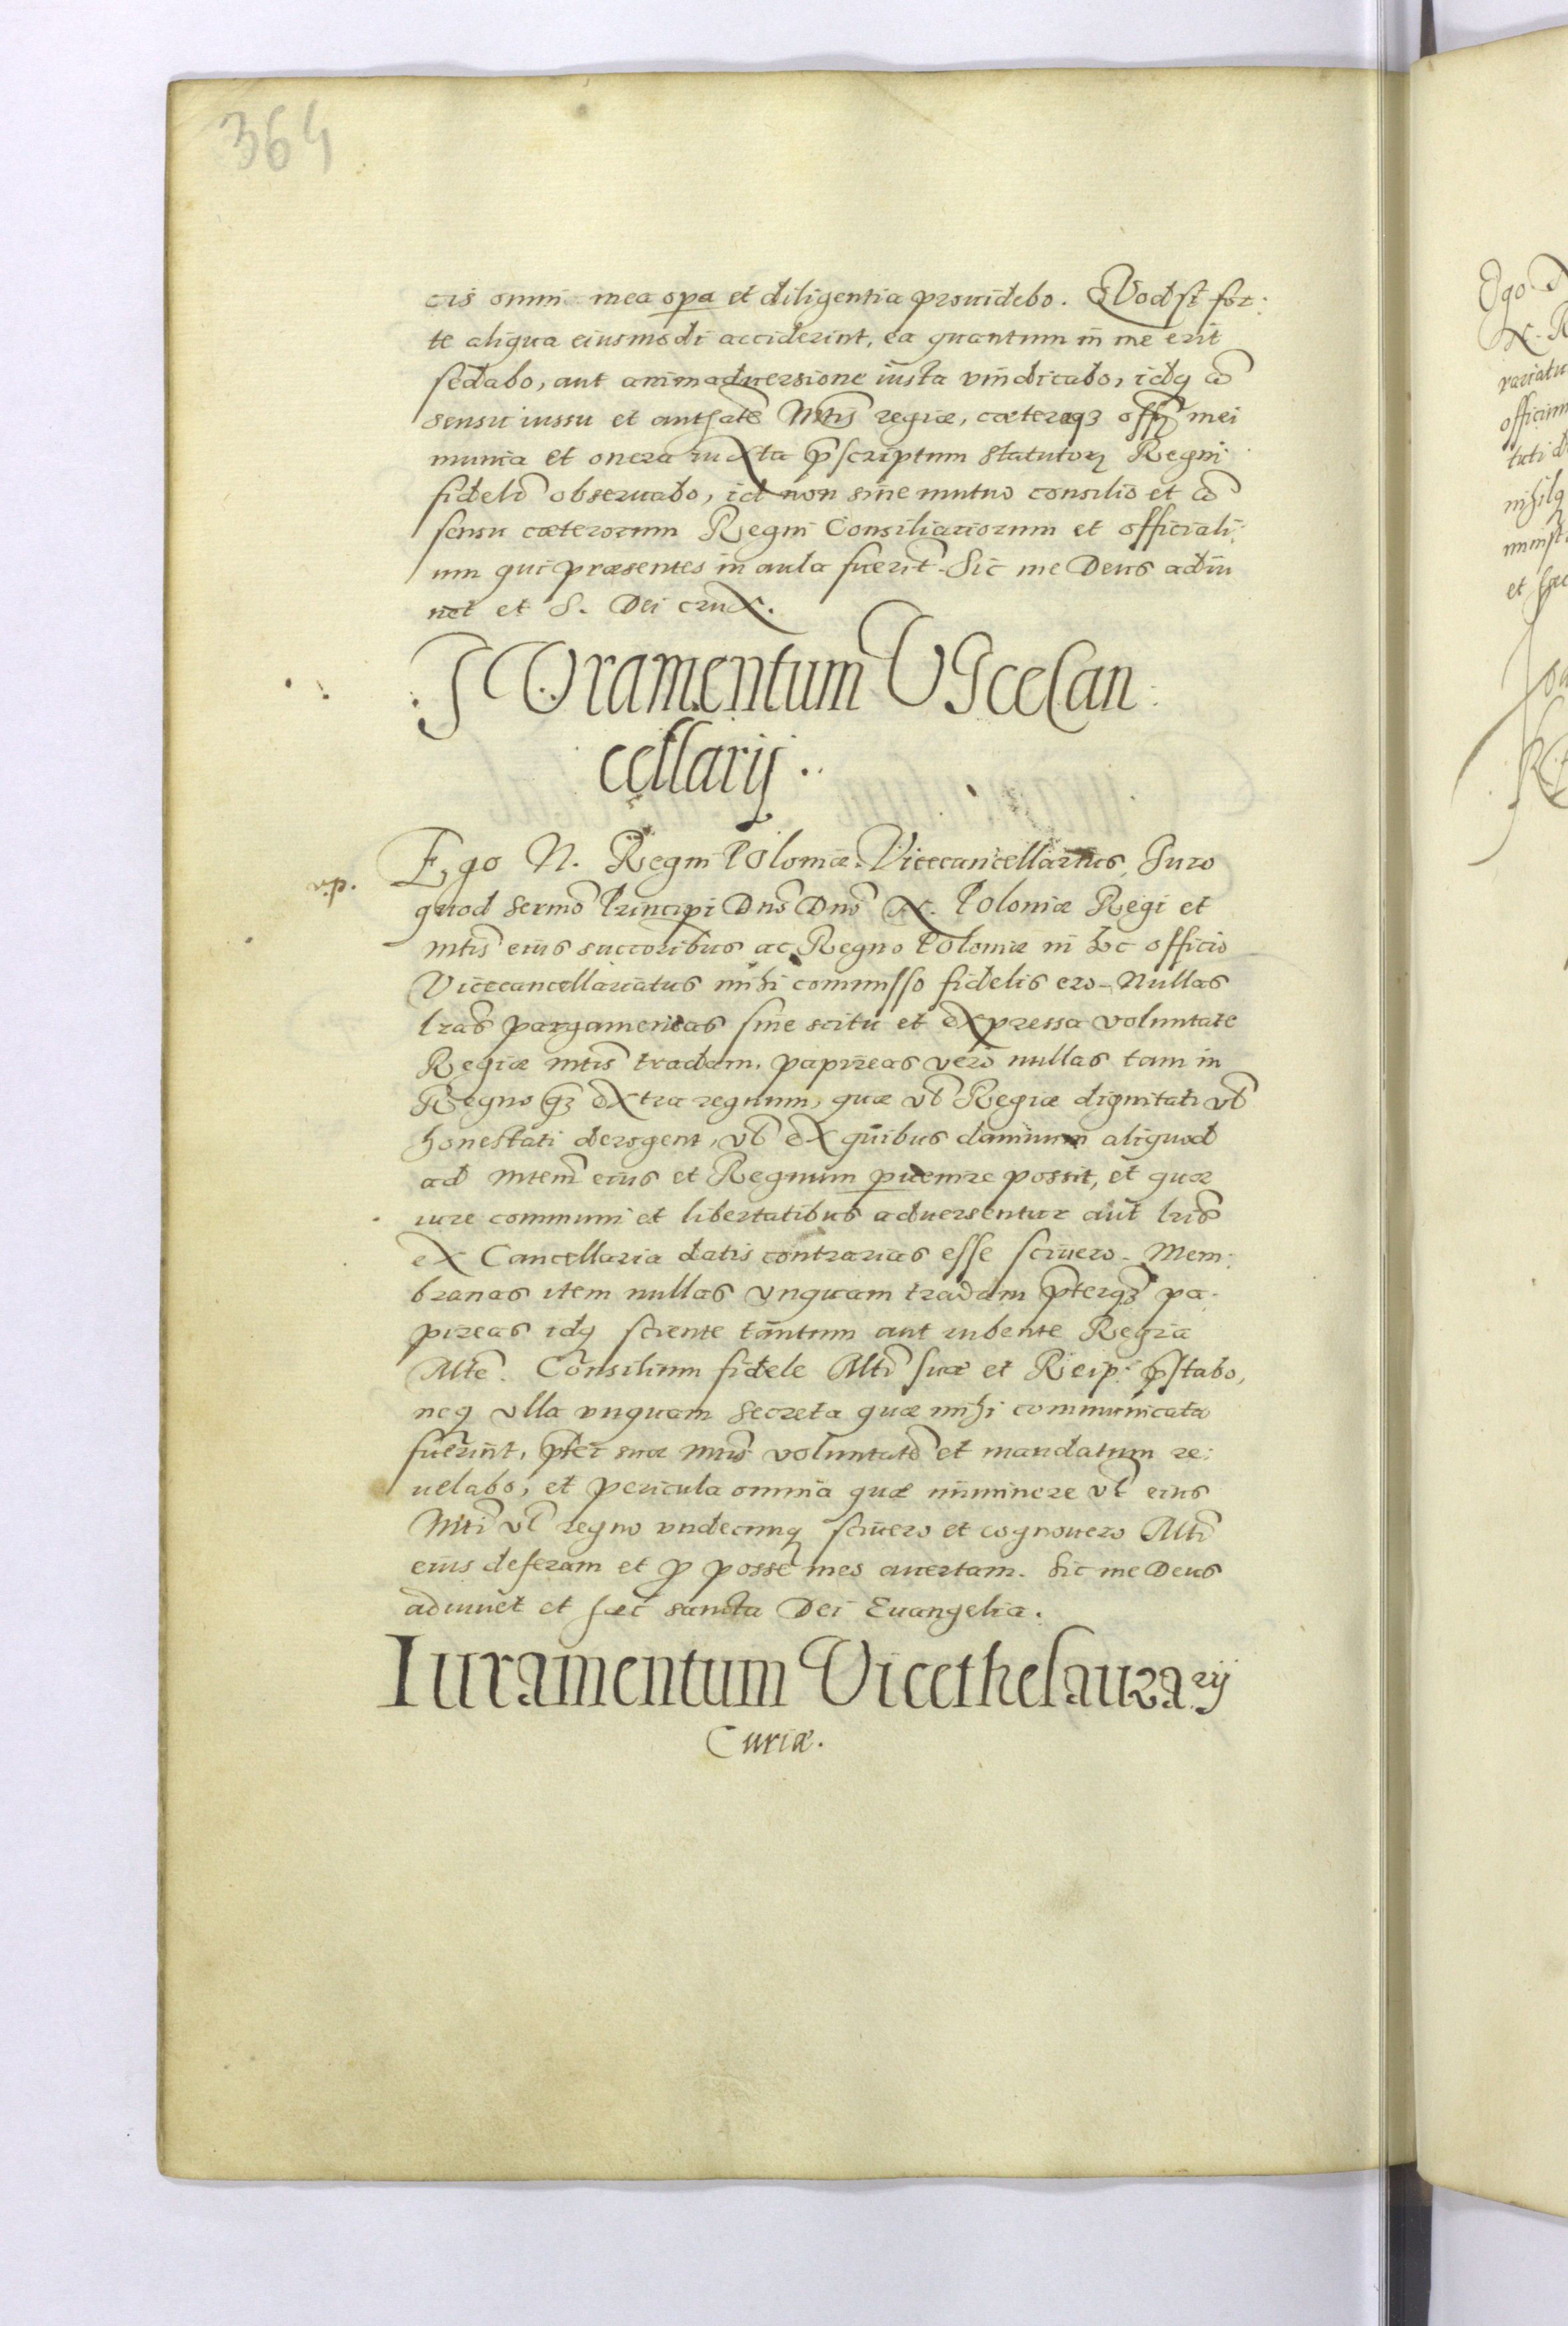 364
cis omni mea opa et diligentia prouidebo. QVod si for:
te aliqua eiusmodi acciderint, ea quantum in me erit
sedabo, aut animaduersione iusta vindicabo, idq3 cõ
sensu iussu et authatẽ Mtis regiæ, cæteraq3 offij mei
munia et onera iuxta p̃scriptum Statutorꝝ Regni
fidelr̃ obseruabo, id non sine mutuo consilio et cõ
sensu cæterorum Regni Consiliariorum et officiali:
um qui præsentes in aula fuerĩt. Sic me Deus adiu
uet et S. Dei crux.
IVramentum VIceCan:
cellarij.
Ego N. Regni POloniæ Vicecancellarius, Iuro
v.p.
quod Sermõ Principi Dnõ Dnõ N. POloniæ Regi et
mtis eius succoribus ac Regno POloniæ in hoc officio
Vicecancellariatus mihi commisso fidelis ero. Nullas
lr̃as pargameneas sine scitu et expressa voluntate
Regiæ mtis tradam, papireas vero nullas tam in
Regno q̃3 extra regnum, quæ vl̃ Regiæ dignitati vl̃
honestati derogent, vl̃ ex quibus damnum aliquod
ad mtem eius et Regnum puenire possit, et quæ
iure communi et libertatibus aduersentur aut lr̃is
ex Cancellaria datis contrarias esse sciuero. Mem:
branas item nullas vnquam tradam p̃terq̃3 pa:
pireas idq3 sciente tantum aut iubente Regia
Mte. Consilium fidele Mti suæ et Reip: p̃stabo,
neq3 vlla vnquam secreta quæ mihi communicata
fuerint, p̃ter suæ mtis voluntatẽ et mandatum re:
uelabo, et pericula omnia quæ imminere vl̃ eius
Mti vl̃ regno vndecunq3 sciuero et cognouero Mti
eius deferam et ꝓ posse meo auertam. Sic me Deus
adiuuet et hæc sancta Dei Euangelia.
Iuramentum Vicethesaurarij
Curiæ.